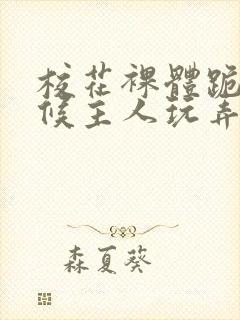 校花裸體跪
候主人玩弄
森夏葵